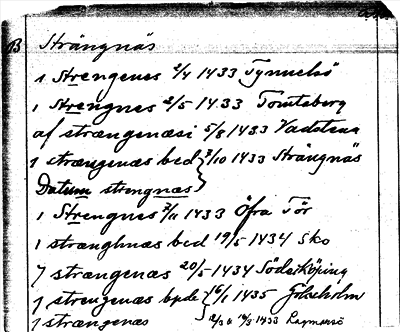 B Strängnäs
1 Strengenes 2/4 1433 Tynnelsö
1 Strengnes 2/5 1433 Tomteberg
af strængenæsi 5/8 1433 Vadstena
1 strængenæs bed 3/10 1433 Strängnäs
Datum strengnæs
1 Strengnes 7/11 1433 Öfra Tör
1 strænghnæs bed 19/5 1434 Sko
7 strængenæs 20/5 1434 Söderköping
1 strængenæs 16/1 1435 Gökseholm
1 strængenæs 1433